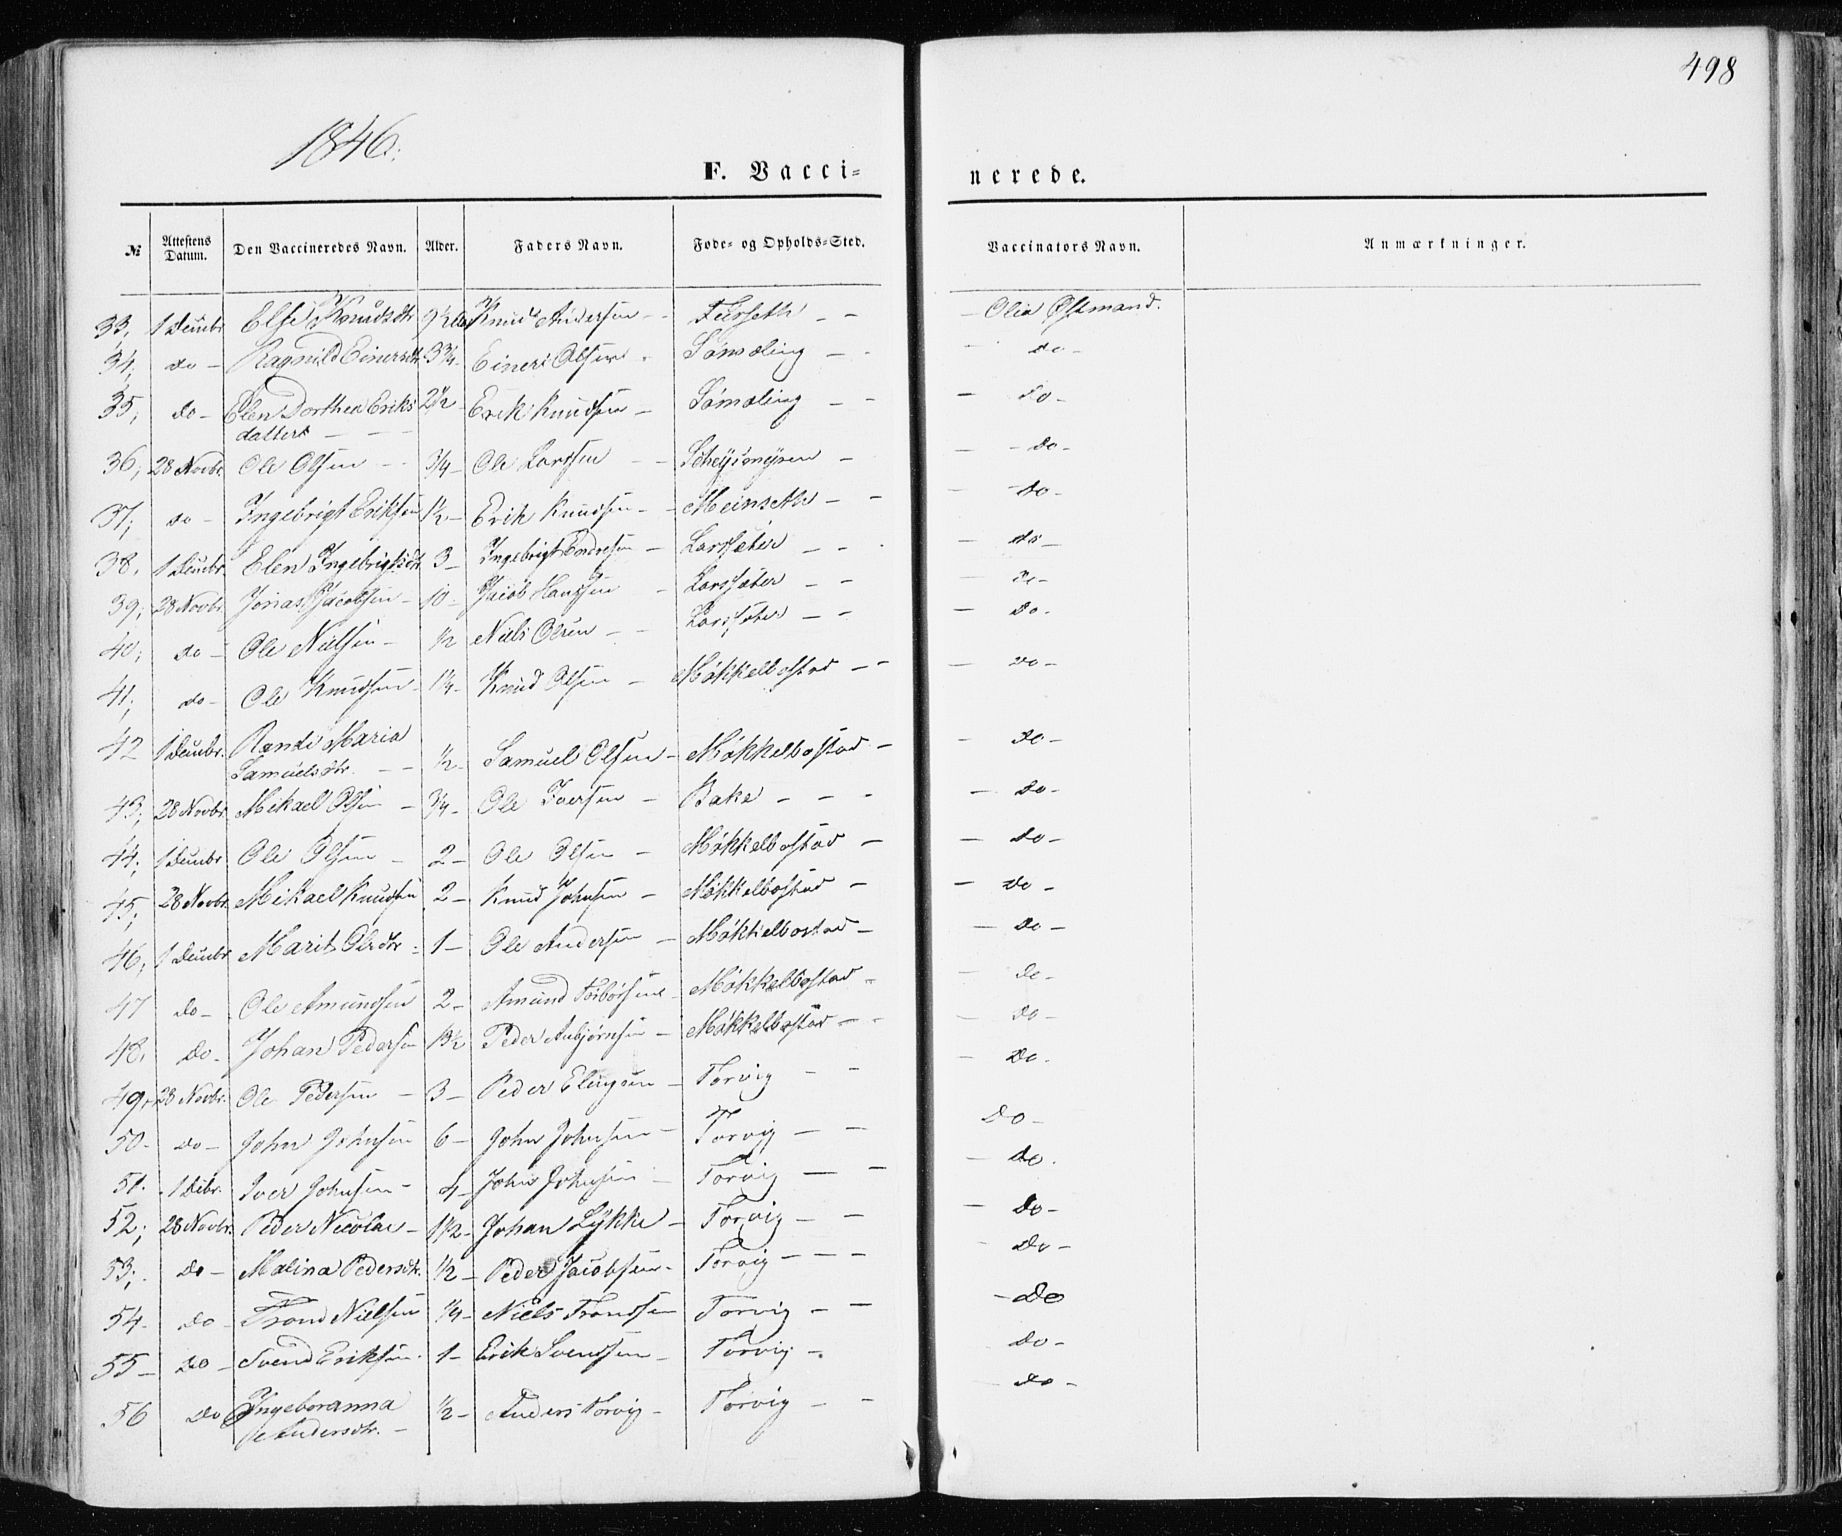 498
1846.
F. Vacci-nerede.
№ Attestens Datum. Den Vaccineredes Navn. Alder. Faders Navn. Føde- og Opholds-Sted. Vaccinators Navn. Anmærkninger.
33, 1 Decmbr Else Knudsdtr 9½ Knud Andersen - Furseth - - - Olia Østmand.
34, do - Ragnild Einersdtr 3¾ - Einer Olsen - Sømdling - - - do -
35, do - Elen Dorthea Eriks 2½ - Erik Knudsen - Sømdling - - - do -
datter - - -
36, 28 Novbr Ole Olsen - - ¾ - Ole Larssen - - Scheysmyren - - do -
37, do - Ingebrigt Eriksen 1½ - Erik Knudsen - - Meinseth - - - do -
38. 1 Decmbr. Elen Ingebrigtsdtr 3 - Ingebrigt Endresen - Larssæter - - - do -
39, 28 Novbr. Jonas Jacobsen - 10 - Jacob Hanssen - Larssæter - - - do -
40, do - Ole Nielsen - ½ Niels Olsen - - Larssæter - - - do -
41, do - Ole Knudsen - 1¼ - Knud Olsen - Møkkelbostad - - - do -
42 1 Decmbr. Rande Maria
Samuelsdtr. - - ½ - Samuel Olsen - Møkkelbostad - - do -
43, 28 Novbr. Mikael Olsen - ¾ - Ole Iversen - Bake - - - - do -
44, 1 Decmbr Ole Olsen - 2 - Ole Olsen - Møkkelbostad - - do -
45, 28 Novbr. Mikael Knudsen 2 - Knud Johnsen - Møkkelbostad - - do -
46, 1 Decmbr Marit Olsdtr - 1 - Ole Andersen - Møkkelbostad - - do -
47 do - Ole Amundsen 2 - Amund Torbørsen - Møkkelbostad - - do -
48. do - Johan Pedersen 13½ Peder Anbjørnsen - Møkkelbostad - - - do -
49. 28 Novbr. Ole Pedersen - 3 - Peder Elingsen - Torvig - - - do.
50. do - John Johnsen 6 - John Johnsen - Torvig - - do -
51. 1 Decbr. Iver Johnsen - 4 - John Johnsen - Torvig - - - do.
52, 28 Novbr. Peder Nicolai - 1½ - Johan Lykke - Torvig - - - do -
53, do - Malina Pedersdtr. ½ - Peder Jacobsen - Torvig - - - - do -
54. do - Trond Nielsen ¼ - Niels Trondsen Torvig - - - do
55 - do - Svend Eriksen. 1 - Erik Svendsen - Torvig - - do -
56 do Ingeboranna ½ - Anders Torvig - Torvig - - - do -
Andersdtr. -